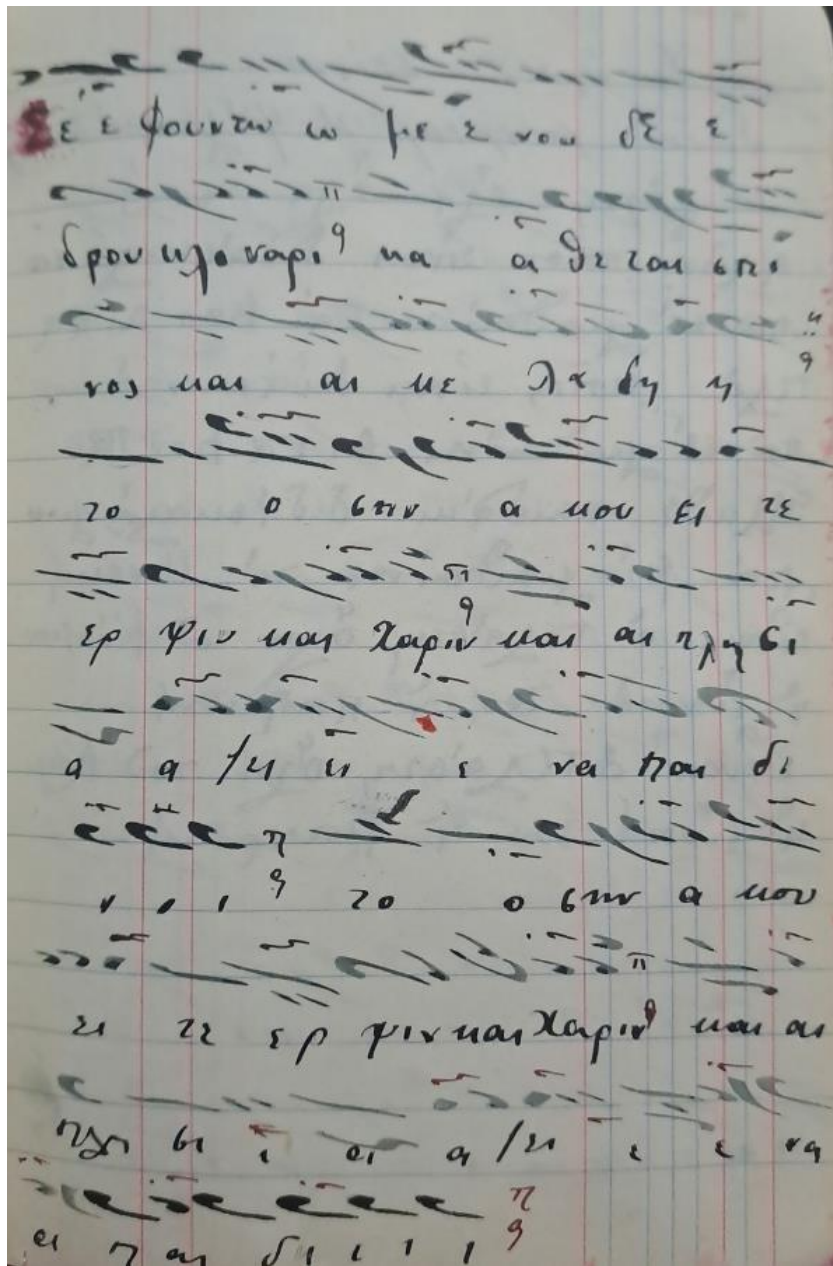 Σε ε φουντω ω με ε νου δε ε
δρου κλο ναρι κα α θε ται σπι
νος και αι κε λα δη η
το ο σην α κου ει τε
ερ ψιν και χαριν και αι πλη σι
α α ζει ει ε να παι δι
ι ι ι το ο σην α κου
ει τε ερ ψιν και χαριν και αι
πλη σι ι α α ζει ι ε να
αι π αι δι ι ι ι